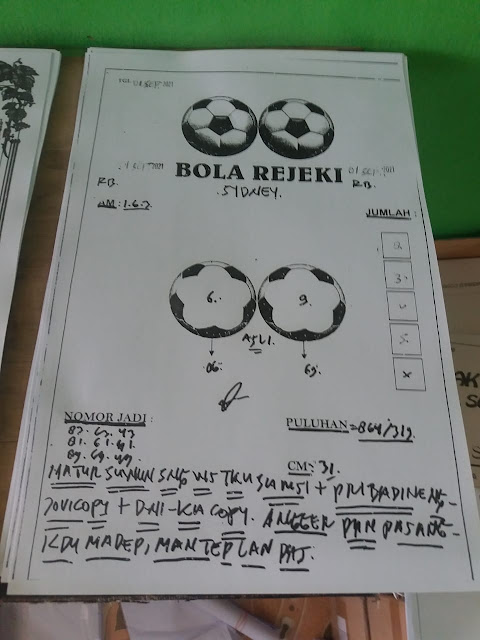 TGL: 01 SEP 2021
01 SEP 2021
BOLA REJEKI
01 SEP 2021
RB.
SYDNEY.
RB.
AM: 1.6.7.
JUMLAH :
2.
3.
6.
9.
ASLI.
06.
69.
NOMOR JADI :
PULUHAN = 864/319
81. 61. 41.
89. 69. 49.
CM: 31.
MATUR SUWUN SNG WS TKU SUMSI + PRIBADINE NG-
JOVICOPY + DNI-KIA COPY. ANGGER DAN PASANG-
KDU MADEP, MANTEP LAN PAS.